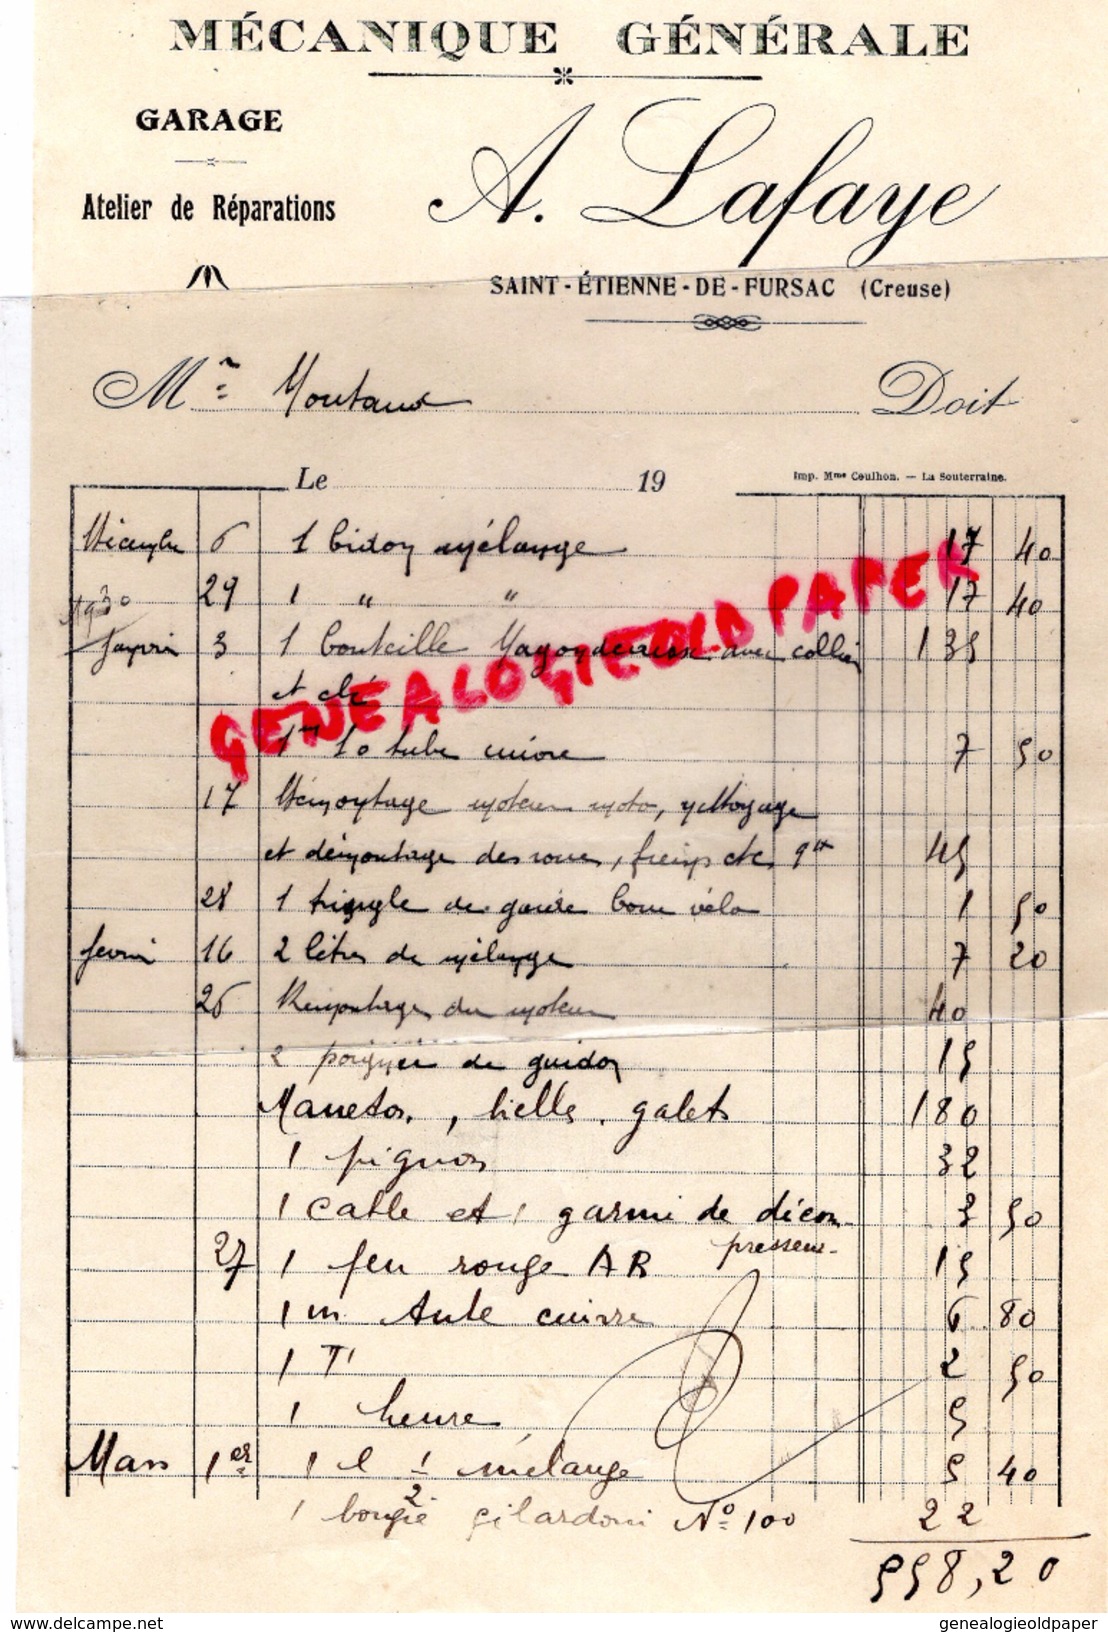 MÉCANIQUE GÉNÉRALE
GARAGE
Atelier de Réparations
A. Lafaye
SAINT-ÉTIENNE-DE-FURSAC (Creuse)
Mr Montaud Doit
Le 19
Imp. Mme Coulhon. — La Souterraine.
Décembre 6 1 bidon mélange 17 40
1930 29 1 " " 17 40
Janvier 3 1 bouteille avec collier 135
et clé
GENEALOGIEOLDPAPER
1m 10 tube cuivre 7 50
17 Démontage moteur moto, nettoyage
et démontage des roues, freins etc 45
28 1 triangle de garde boue vélo 1 50
fevrier 16 2 litres de mélange 7 20
26 Remontage du moteur 40
2 poignées de guidon 15
Maneton, bielle. galets 180
1 pignon 32
1 cable et 1 garni de décom- 3 50
presseur
27 1 feu rouge AR 15
1 m tube cuivre 6 80
1 T 2 50
1 heure 5
Mars 1er 1 l 1/2 mélange 5 40
1 bougie gilardoni No 100 22
558,20
www.delcampe.net
genealogieoldpaper